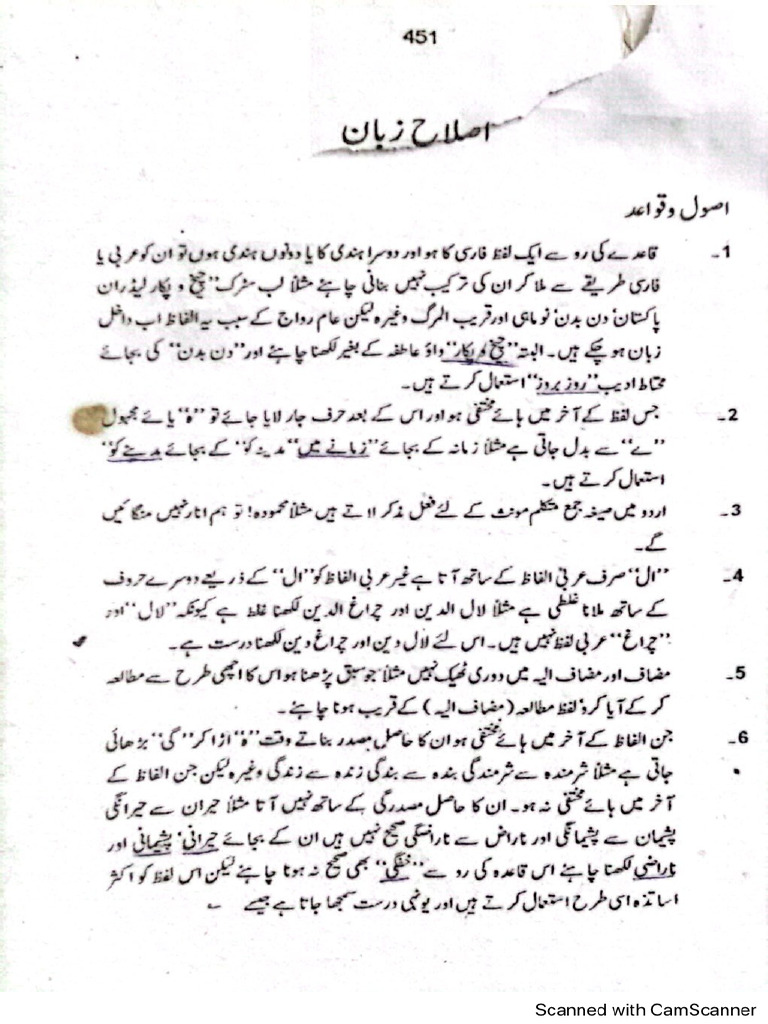 451
اصلاح زبان
اصول و قواعد
1۔ قاعدے کی رو سے ایک لفظ فارسی کا ہو اور دوسرا ہندی کا یا دونوں ہندی ہوں تو ان کو عربی یا
فارسی طریقے سے ملا کر ان کی ترکیب نہیں بنانی چاہئے مثلاً لب سڑک" چیخ و پکار لیڈران
پاکستان' دن بدن' نو ماہی اور قریب المرگ وغیرہ لیکن عام رواج کے سبب یہ الفاظ اب داخل
زبان ہو چکے ہیں۔ البتہ "چیخ و پکار" واؤ عاطفہ کے بغیر لکھنا چاہئے اور "دن بدن" کی بجائے
محتاط ادیب "روز بروز" استعمال کرتے ہیں۔
2۔ جس لفظ کے آخر میں ہائے مختفی ہو اور اس کے بعد حرف جار لایا جائے تو "ہ" یائے مجہول
"ے" سے بدل جاتی ہے مثلاً زمانہ کے بجائے "زمانے میں" مدینہ کو" کے بجائے مدینے کو"
استعمال کرتے ہیں۔
3۔ اردو میں صیغہ جمع متکلم مونث کے لئے فعل مذکر لاتے ہیں مثلاً محمودہ! تو ہم انار نہیں منگائیں
گے۔
4۔ "ال" صرف عربی الفاظ کے ساتھ آتا ہے غیر عربی الفاظ کو "ال" کے ذریعے دوسرے حروف
کے ساتھ ملانا غلطی ہے مثلاً لال الدین اور چراغ الدین لکھنا غلط ہے کیونکہ "لال" اور
"چراغ" عربی لفظ نہیں ہیں۔ اس لئے لال دین اور چراغ دین لکھنا درست ہے۔
5۔ مضاف اور مضاف الیہ میں دوری ٹھیک نہیں مثلاً "جو سبق پڑھنا ہو اس کا اچھی طرح سے مطالعہ
کر کے آیا کرو' لفظ مطالعہ (مضاف الیہ) کے قریب ہونا چاہئے۔
6۔ جن الفاظ کے آخر میں ہائے مختفی ہو ان کا حاصل مصدر بناتے وقت "ہ" اڑا کر "گی" بڑھائی
جاتی ہے مثلاً شرمندہ سے شرمندگی بندہ سے بندگی زندہ سے زندگی وغیرہ لیکن جن الفاظ کے
آخر میں ہائے مختفی نہ ہو۔ ان کا حاصل مصدر گی کے ساتھ نہیں آتا مثلاً حیران سے حیرانگی
پشیمان سے پشیمانگی اور ناراض سے ناراضگی صحیح نہیں ہیں ان کے بجائے حیرانی' پشیمانی اور
ناراضی لکھنا چاہئے اس قاعدہ کی رو سے "خفگی" بھی صحیح نہ ہونا چاہئے لیکن اس لفظ کو اکثر
اساتذہ اسی طرح استعمال کرتے ہیں اور یونہی درست سمجھا جاتا ہے جیسے ۔
Scanned with CamScanner